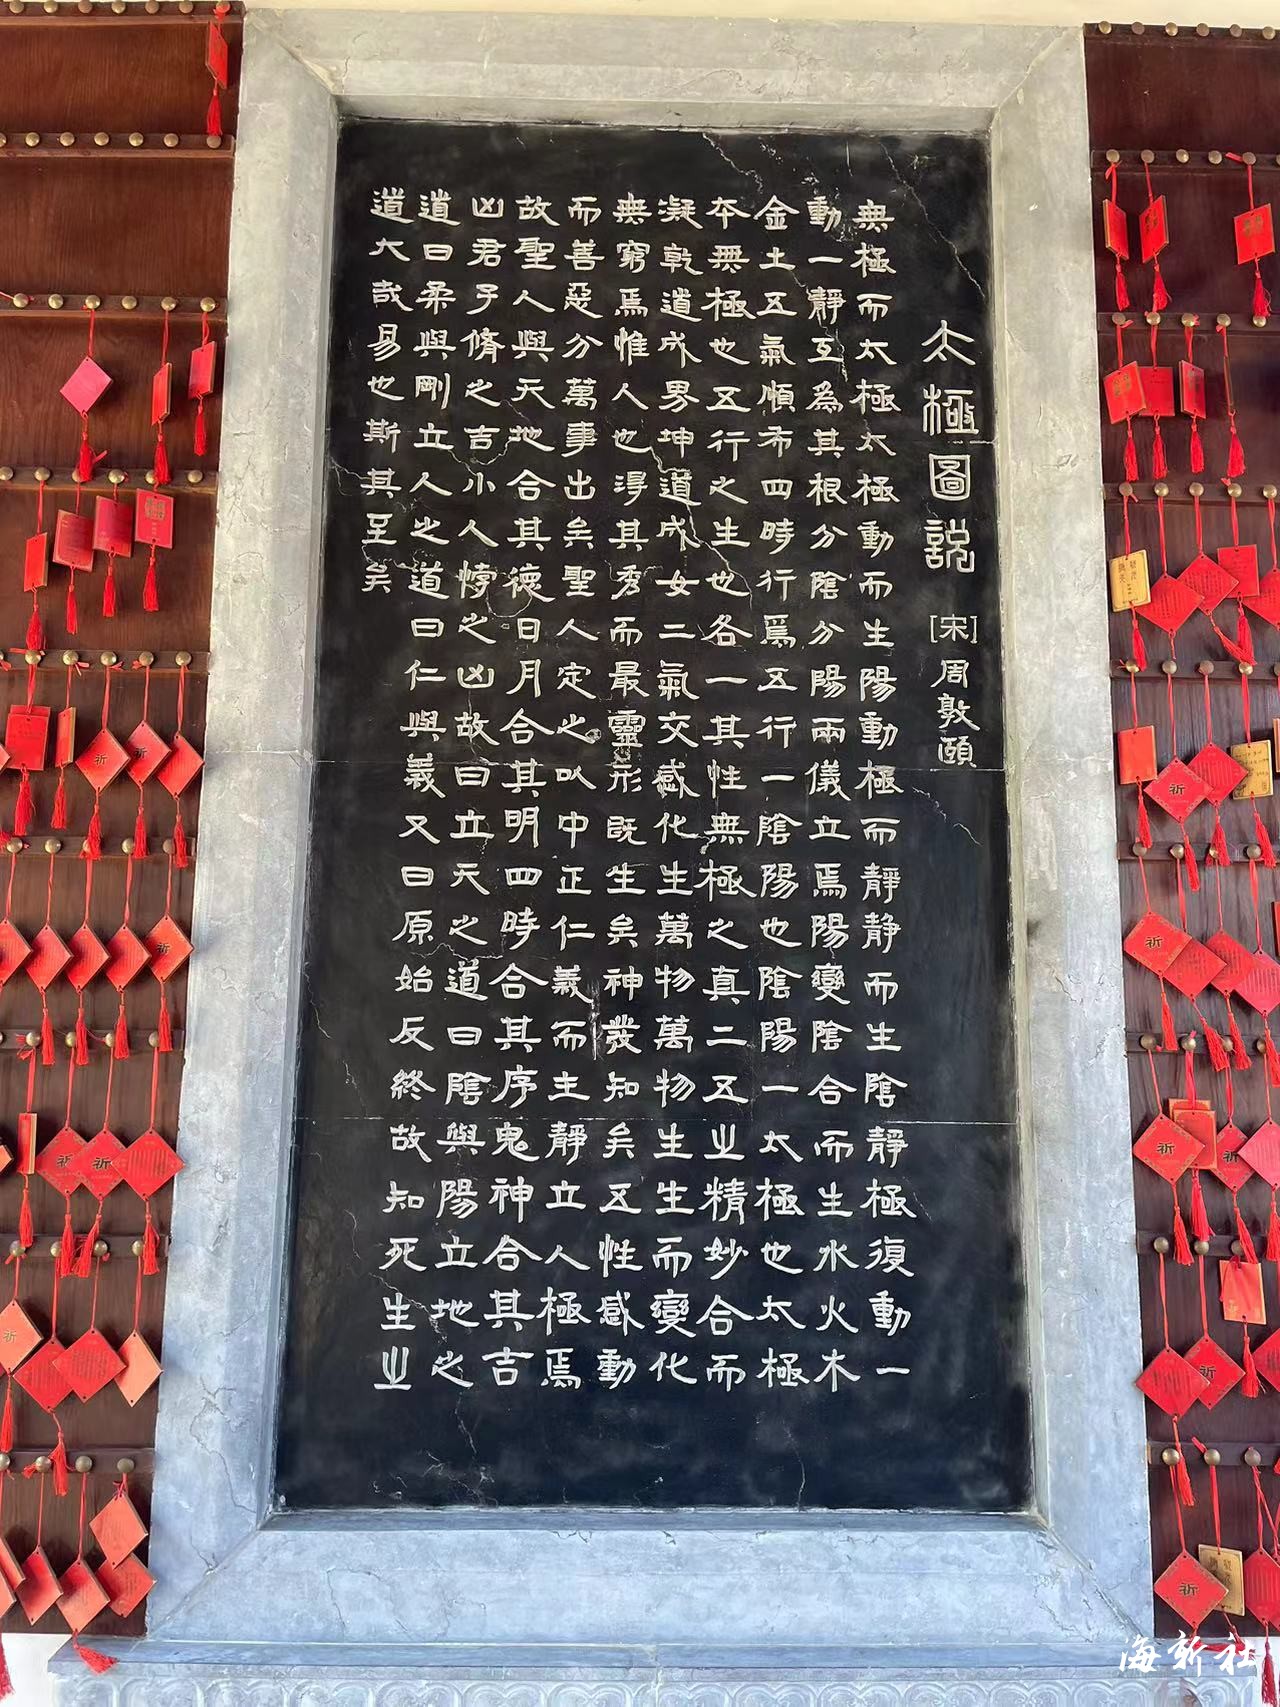 太極圖說 [宋]周敦頤
無極而太極太極動而生陽動極而靜靜而生陰靜極復動一
動一靜互為其根分陰分陽兩儀立焉陽變陰合而生水火木
金土五氣順布四時行焉五行一陰陽也陰陽一太極也太極
本無極也五行之生也各一其性無極之真二五之精妙合而
凝乾道成男坤道成女二氣交感化生萬物萬物生生而變化
無窮焉惟人也得其秀而最靈形既生矣神發知矣五性感動
而善惡分萬事出矣聖人定之以中正仁義而主靜立人極焉
故聖人與天地合其德日月合其明四時合其序鬼神合其吉
凶君子脩之吉小人悖之凶故曰立天之道曰陰與陽立地之
道曰柔與剛立人之道曰仁與義又曰原始反終故知死生之
道大哉易也斯其至矣
祈
祈
祈
祈
祈
祈
祈
祈
祈
祈
祈
祈
海新社